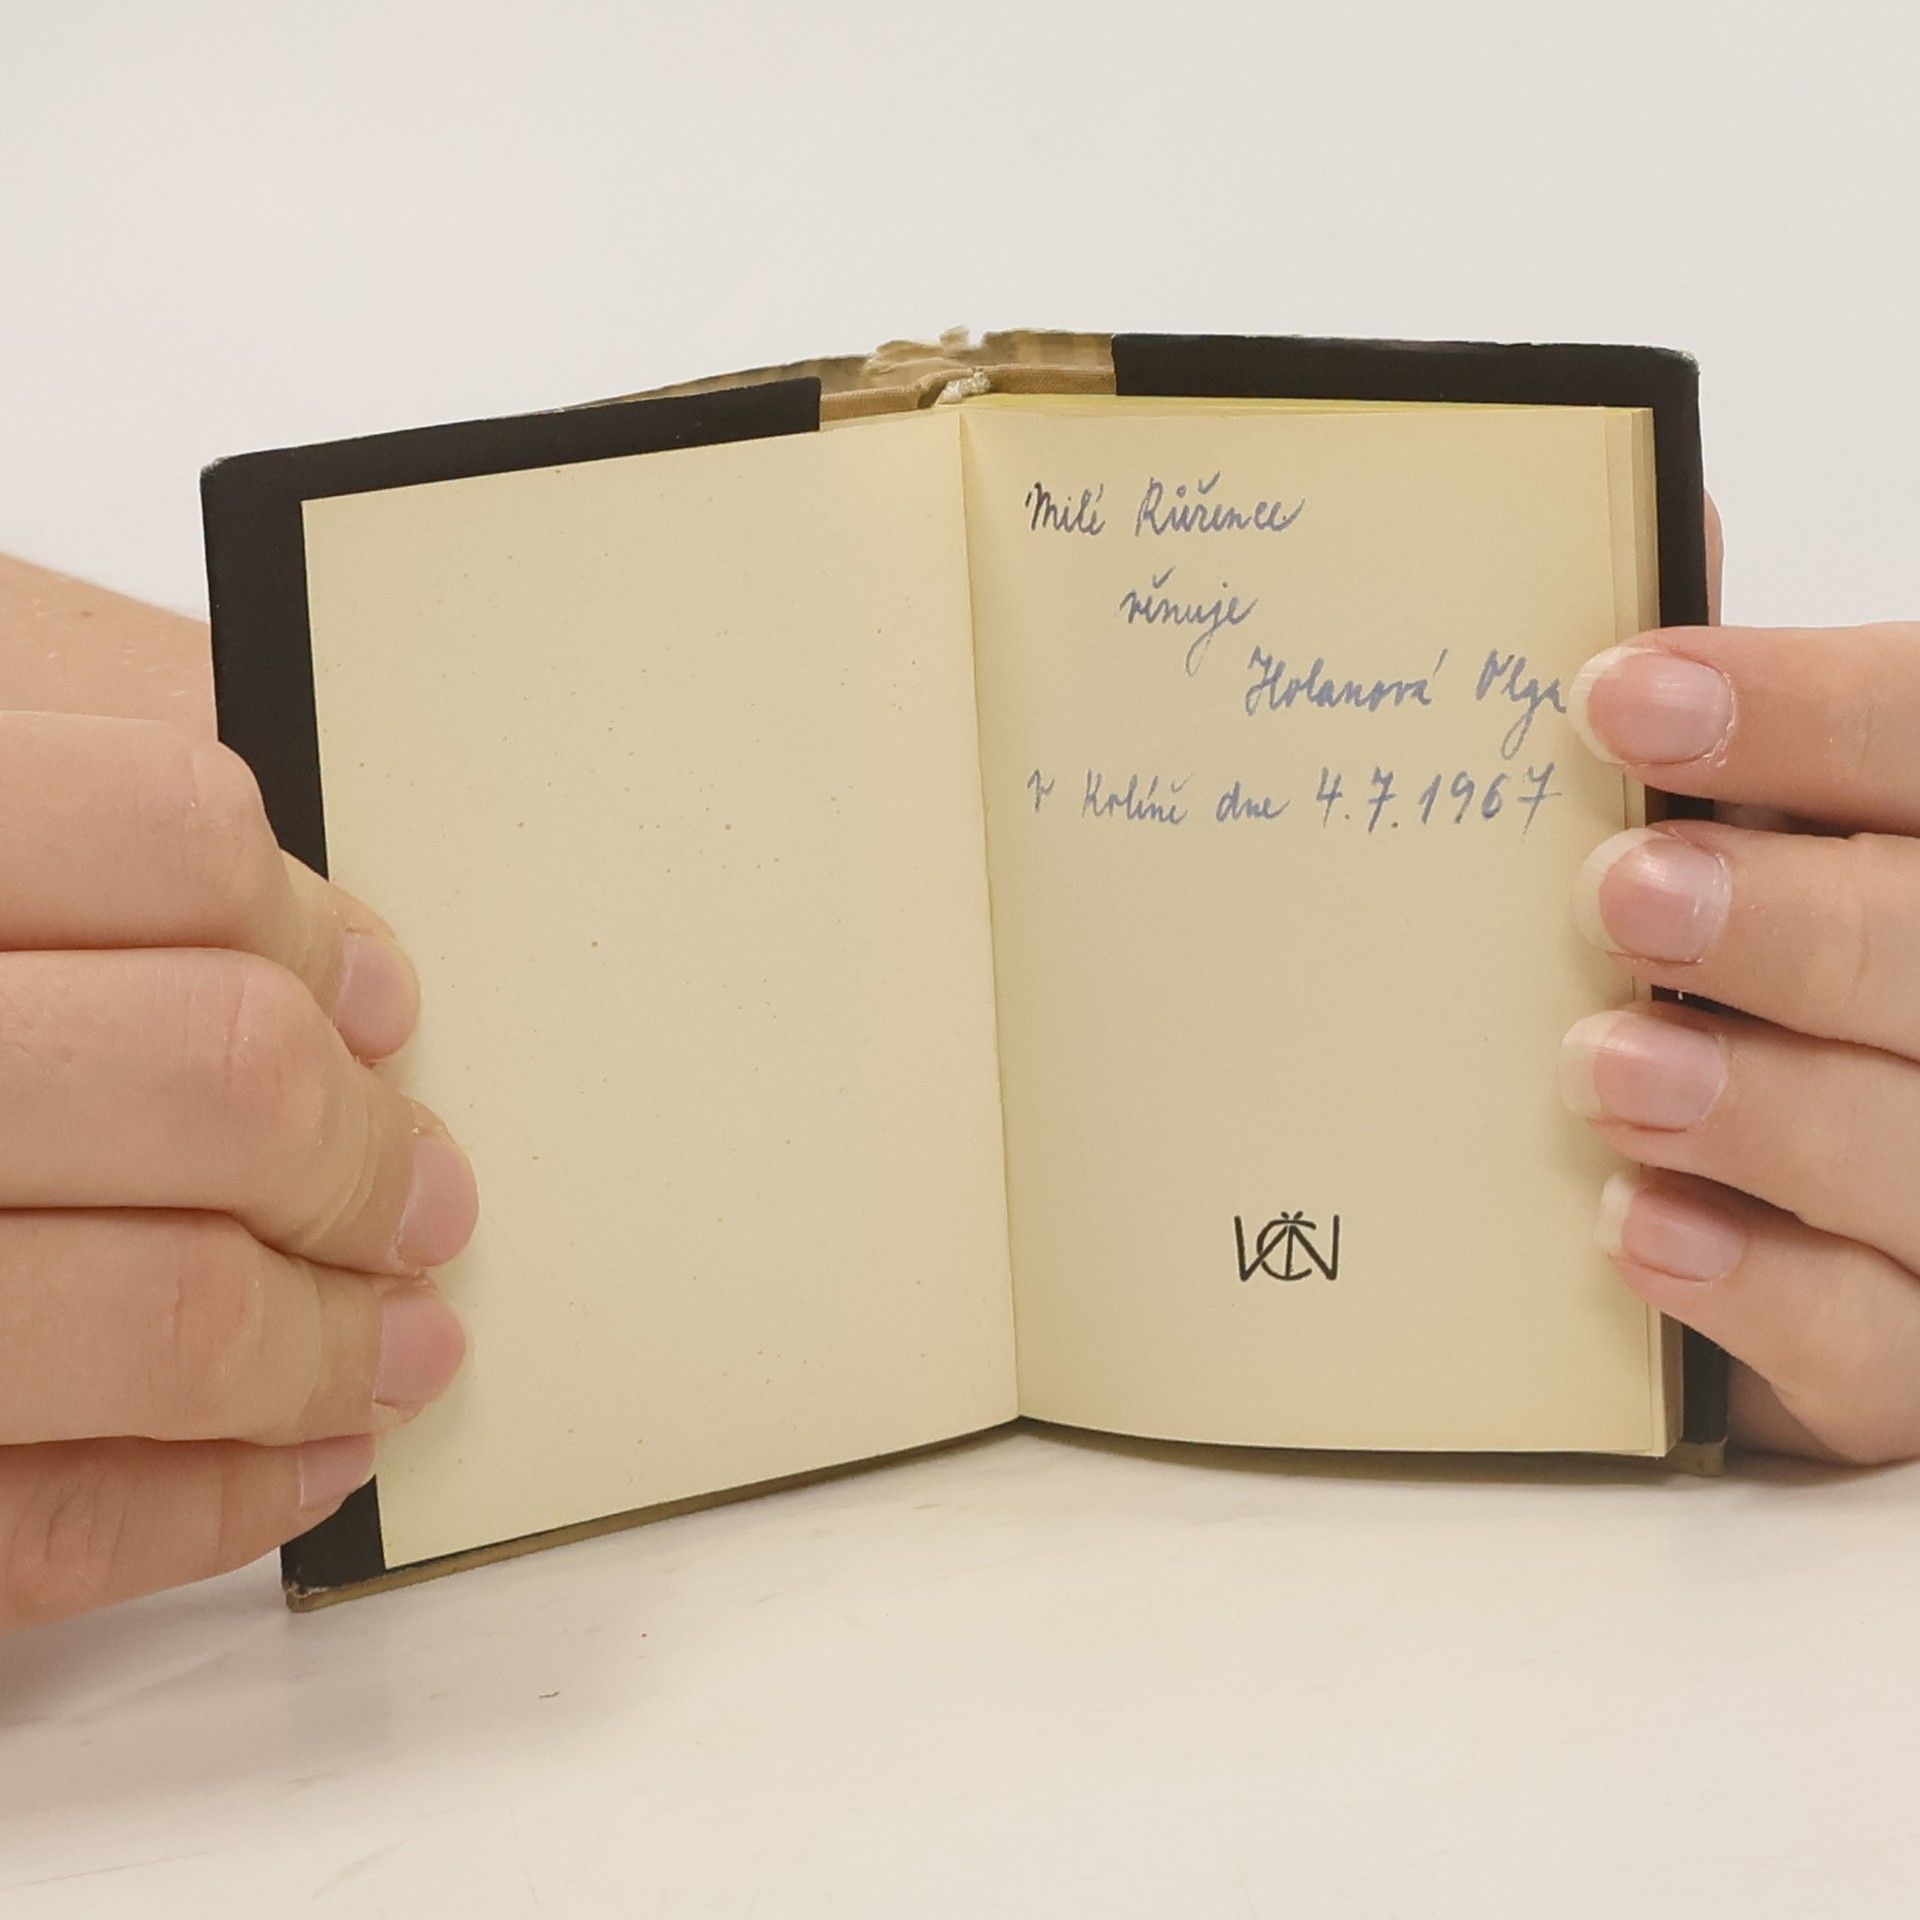 Milé Růžence
věnuje
Holanová Olga
v Kolíně dne 4.7.1967